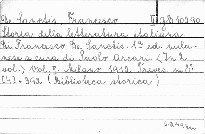 De Sanctis, Francesco
Storia della letteratura italiana
De Francesco De Sanctis. 1ª ed. mila-
nese a cura di Paolo Arcari. (In 2
vol.) Vol. I. Milano 1912. Treves. in 16º
392 (Biblioteca storica)